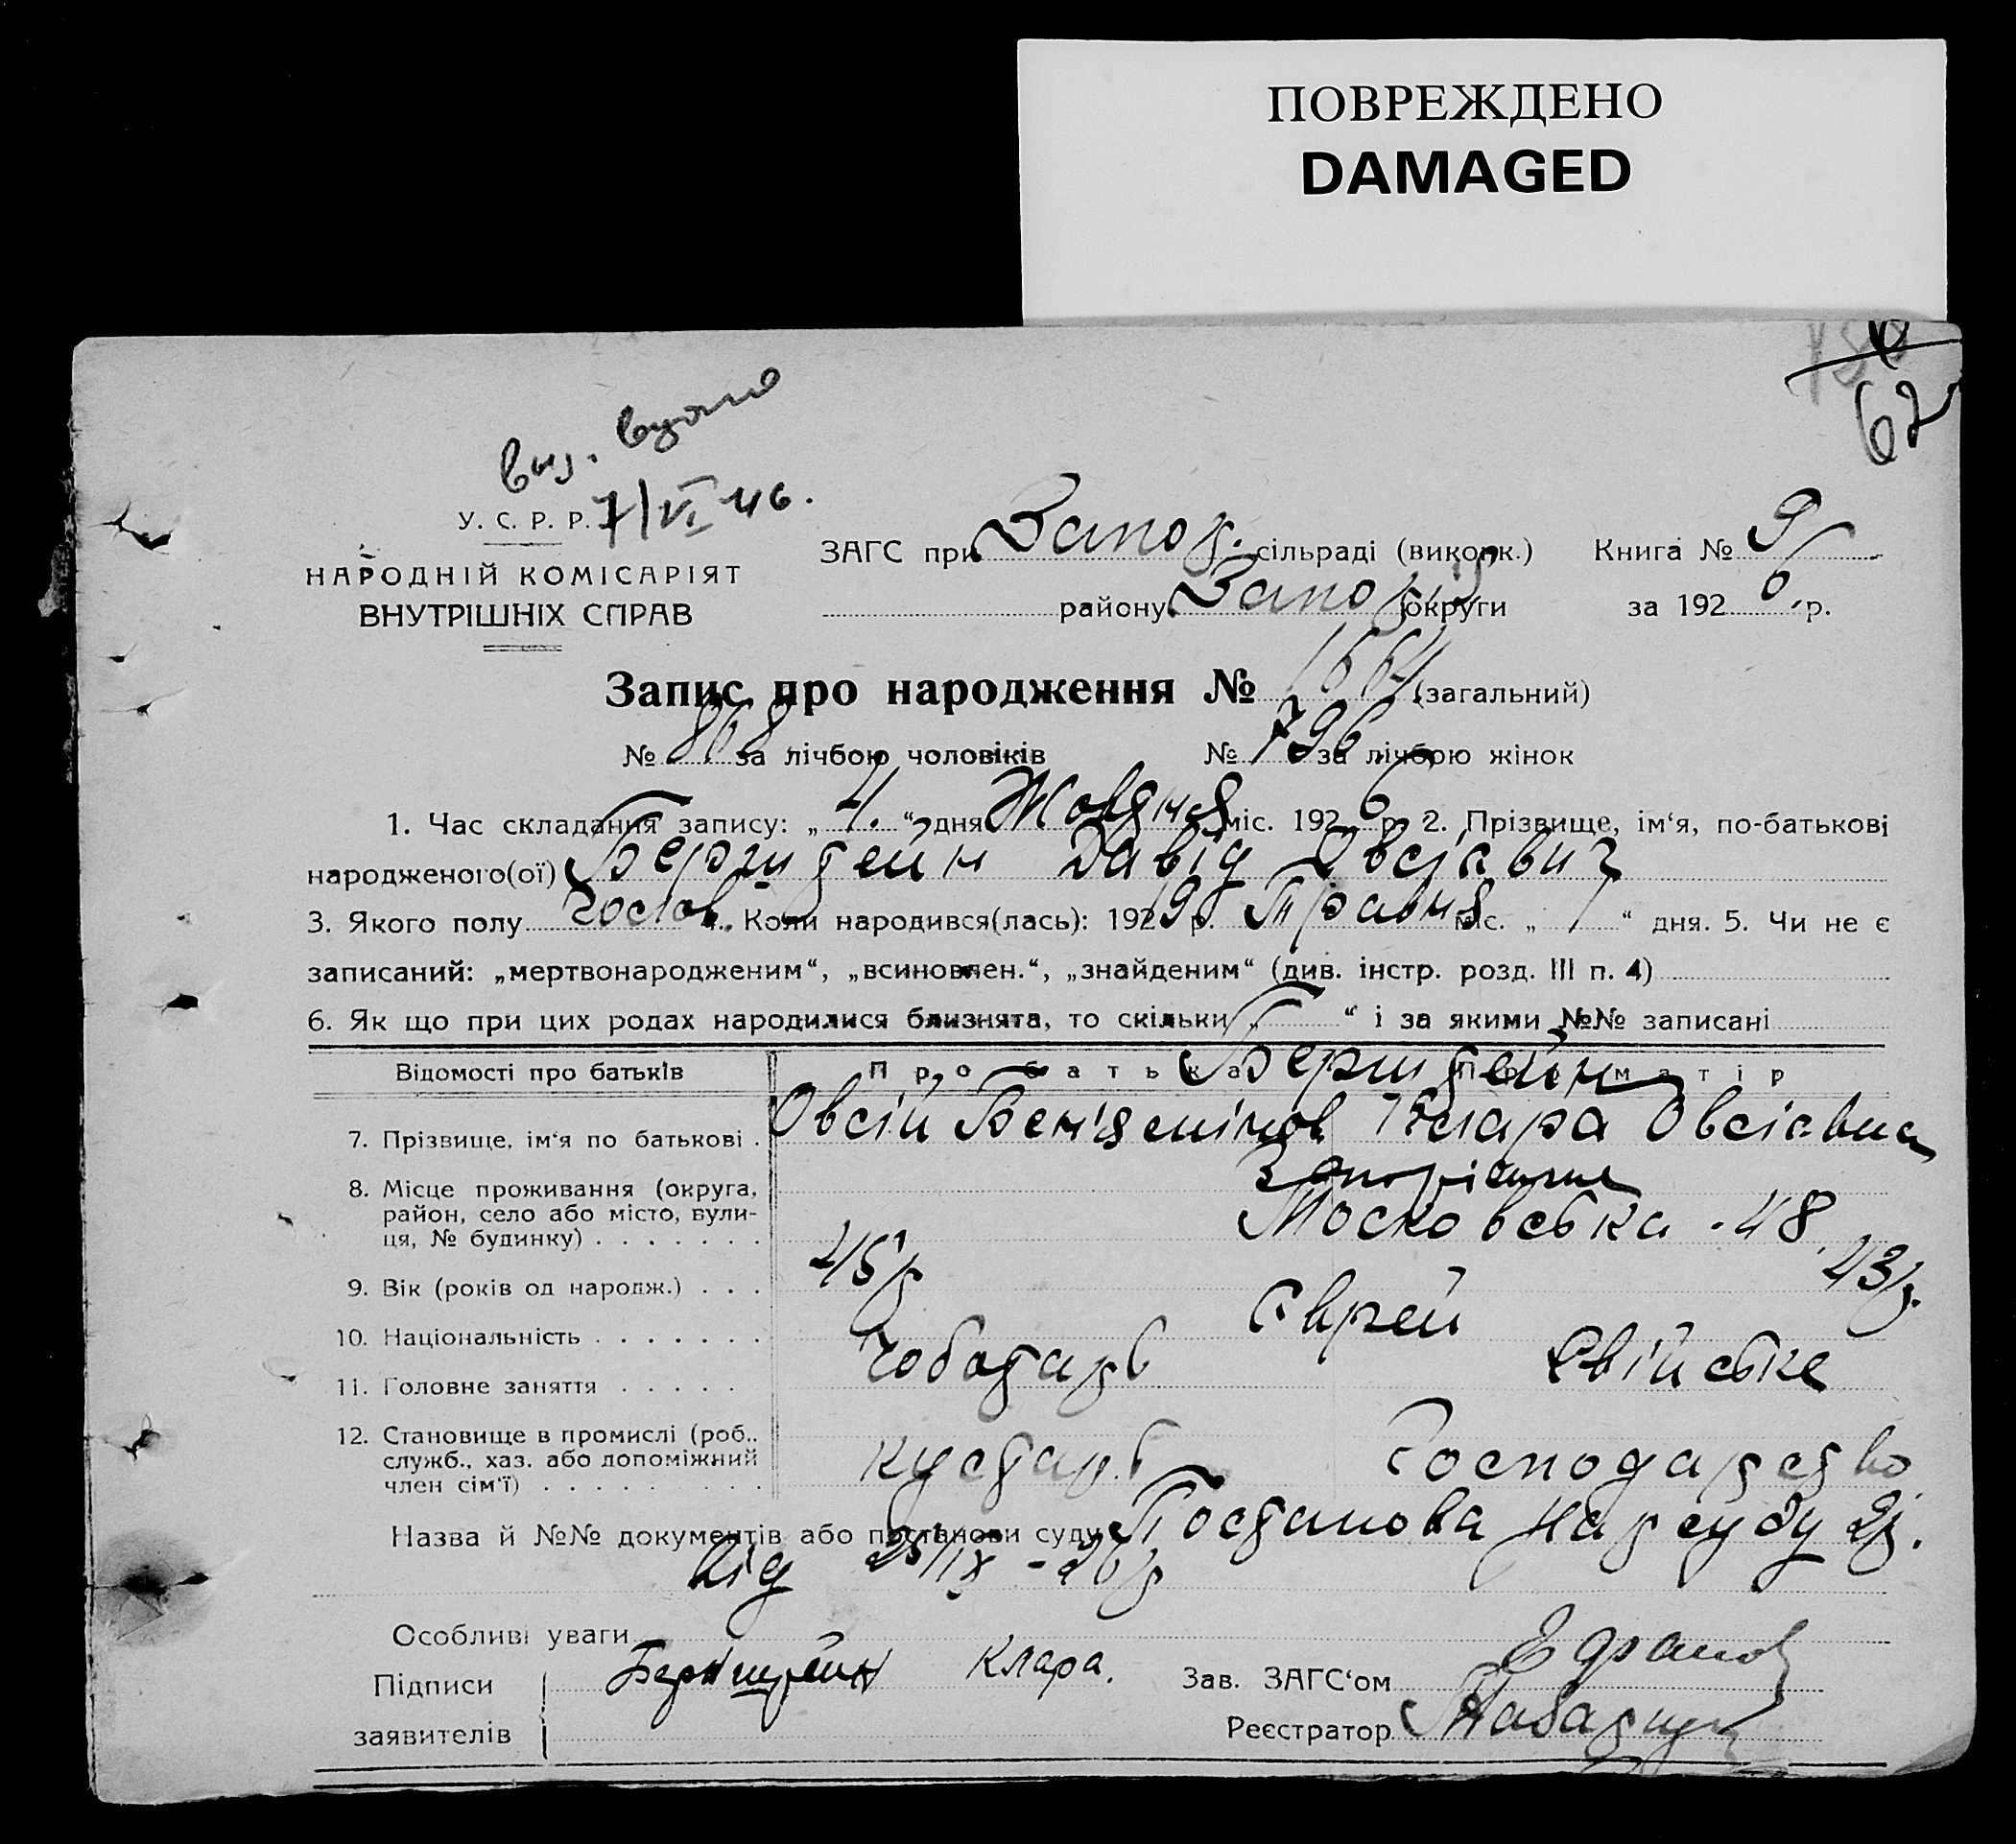 ПОВРЕЖДЕНО
DAMAGED
62
7/VI 46.
У. С. Р. Р.
НАРОДНІЙ КОМІСАРІЯТ
ВНУТРІШНІХ СПРАВ
ЗАГС при Запор. сільраді (виконк.) Книга № 9
району Запор округи за 1926 р.
Запис про народження № 1664 (загальний)
№ 868 за лічбою чоловіків № 796 за лічбою жінок
1. Час складання запису: „4.“ дня Жовтня міс. 1926 р. 2. Прізвище, ім‘я, по-батькові
народженого(ої) Бернштейн Давід Овсієвич
3. Якого полу чолов. 4. Коли народився(лась): 192 р. Травня міс. „ “ дня. 5. Чи не є
записаний: „мертвонародженим“, „всиновлен.“, „знайденим“ (див. інстр. розд. III п. 4)
6. Як що при цих родах народилися близнята, то скільки „ “ і за якими №№ записані
Відомості про батьків Про батька Про матір
Бернштейн
7. Прізвище, ім‘я по батькові . Овсій Веніямінов Клара Овсієвна
8. Місце проживання (округа, Запоріжжя
район, село або місто, вули- Московська 48
ця, № будинку) . . . . . . .
9. Вік (років од народж.) . . . 45 р 43 р.
10. Національність . . . . . . . Єврей
11. Головне заняття . . . . . Чоботарь Свійське
12. Становище в промислі (роб.,
служб., хаз. або допоміжний кустарь Господарство
член сім‘ї) . . . . . . . .
Назва й №№ документів або постанови суду Постанова Нарсуду
від 25/IX - 26 р
Особливі уваги
Підписи Бернштейн Клара. Зав. ЗАГС‘ом
заявителів Реєстратор